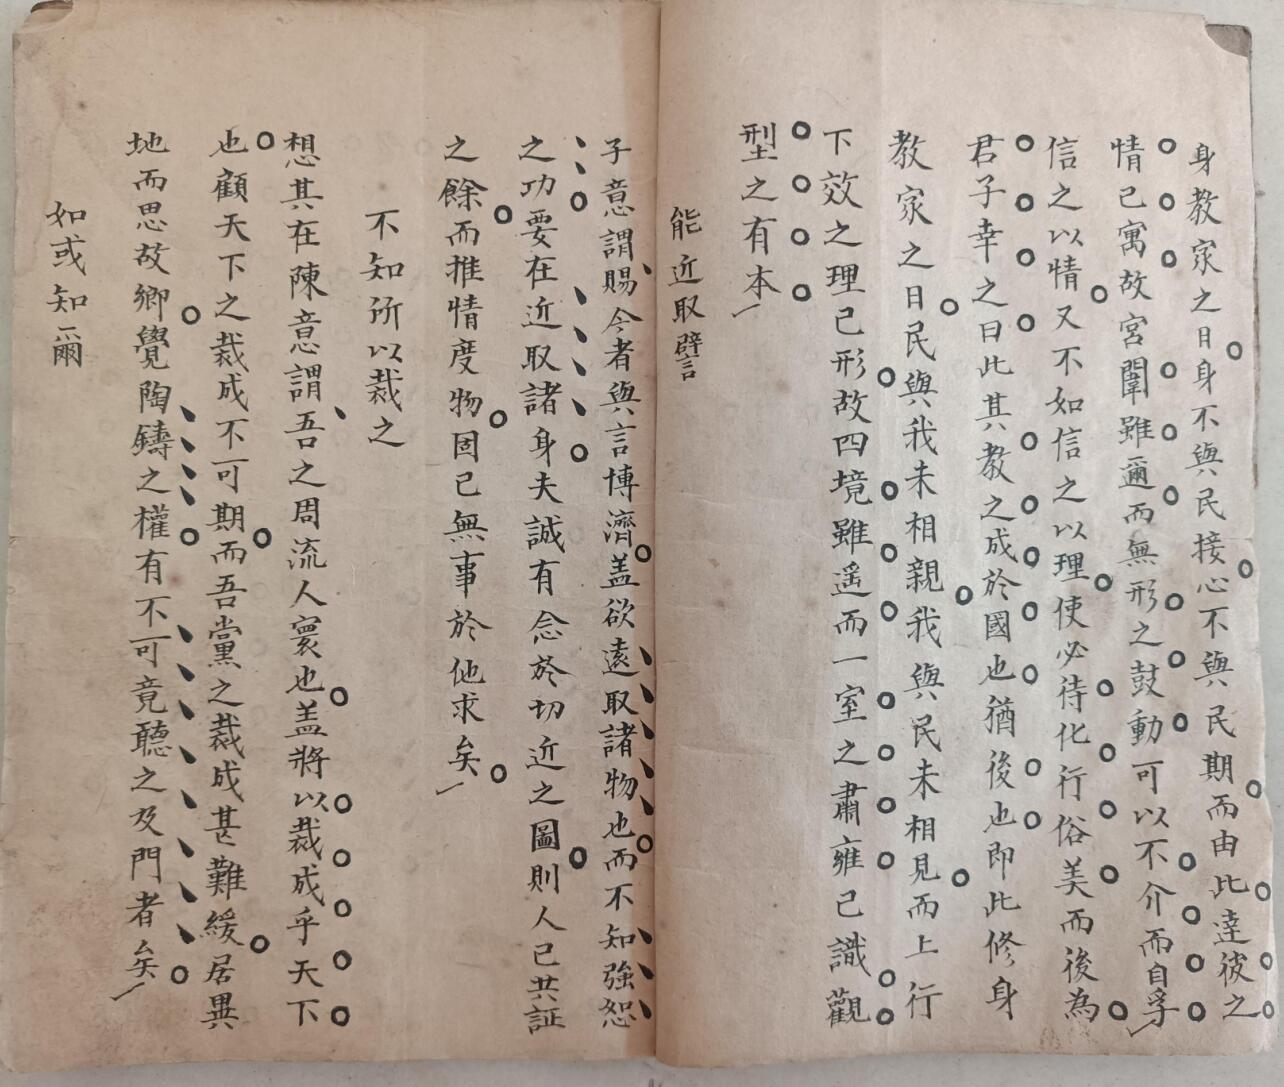 身教家之日身不與民接心不與民期而由此達彼之
情已寓故宮闈雖邇而無形之鼓動可以不介而自孚
信之以情又不如信之以理使必待化行俗美而後為
君子幸之曰此其教之成於國也猶後也即此修身
教家之日民與我未相親我與民未相見而上行
下效之理已形故四境雖遥而一室之肅雍已識觀
型之有本
能近取譬
子意謂賜今者與言博濟盖欲遠取諸物也而不知強恕
之功要在近取諸身夫誠有念於切近之圖則人已共証
之餘而推情度物固已無事於他求矣
不知所以裁之
想其在陳意謂吾之周流人寰也盖將以裁成乎天下
也顧天下之裁成不可期而吾黨之裁成甚難緩居異
地而思故鄉覺陶鑄之權有不可竟聽之及門者矣
如或知爾